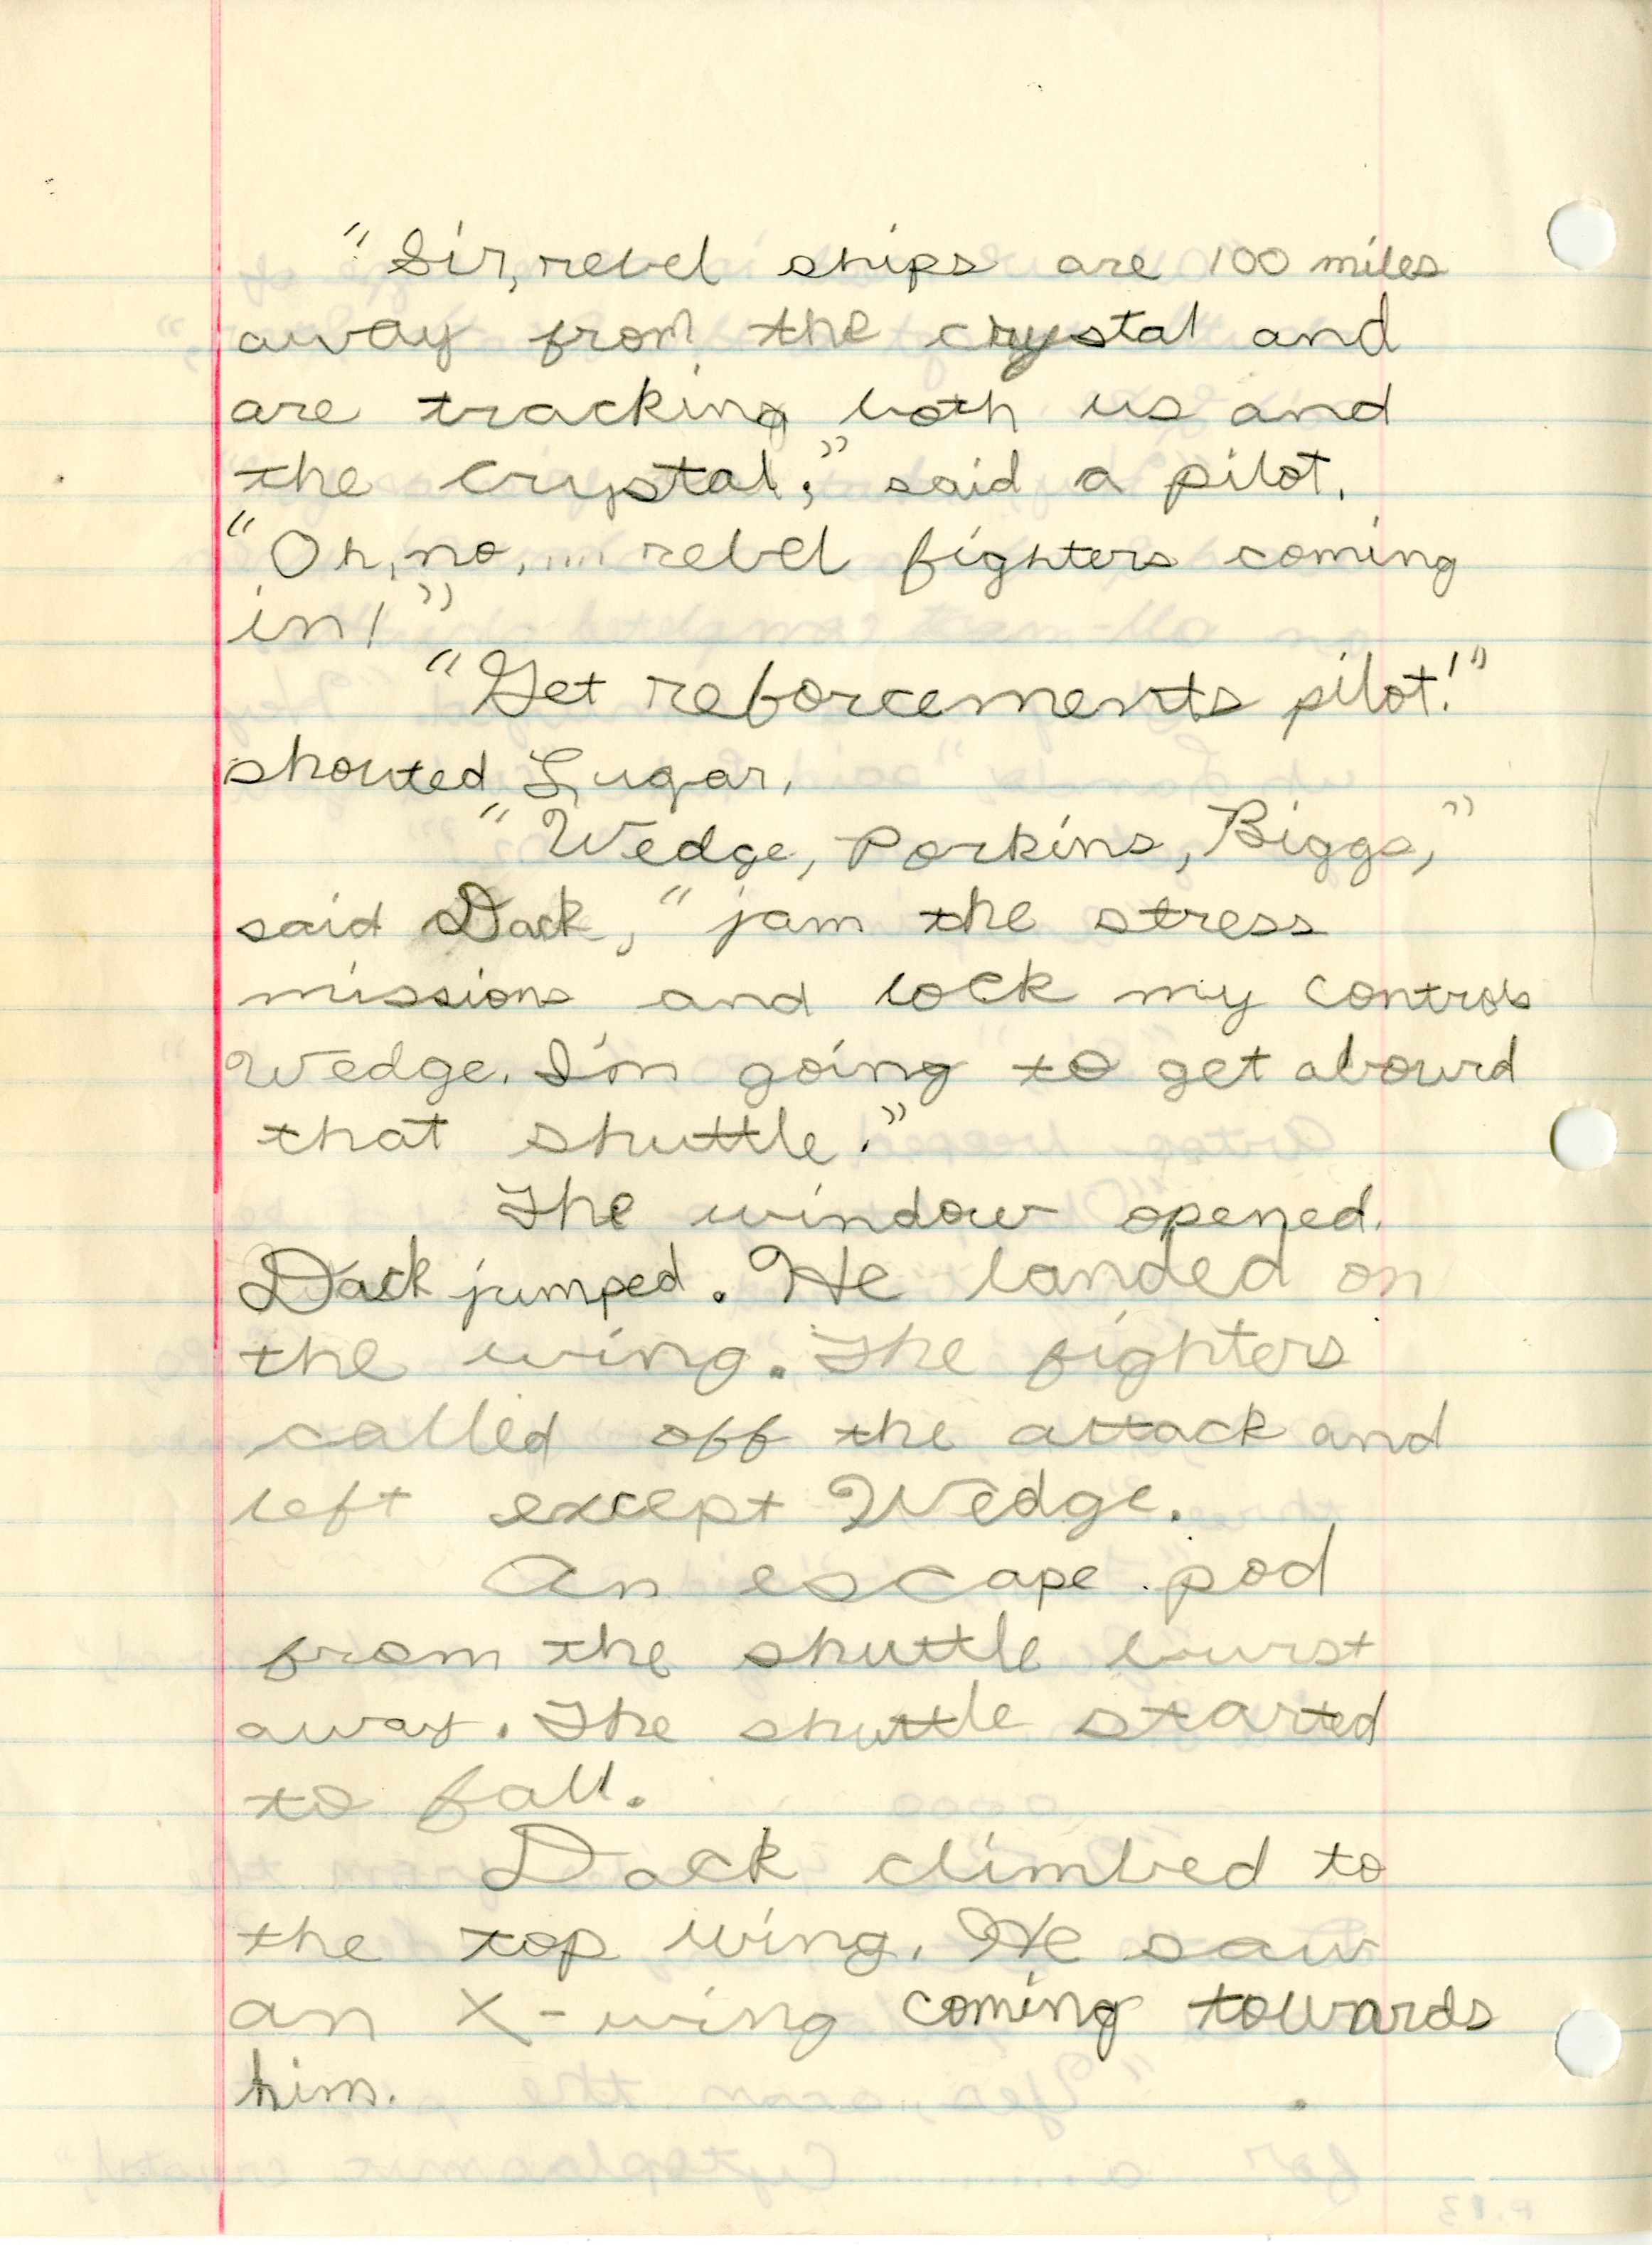 "Sir, rebel ships are 100 miles
away from the crystal and
are tracking both us and
the crystal," said a pilot.
"Oh, no, .... rebel fighters coming
in!"
"Get reforcements pilot!"
shouted Lugar.
"Wedge, Porkins, Biggs,"
said Dack, "jam the stress
missions and lock my controls
Wedge. I'm going to get abourd
that shuttle."
The window opened.
Dack jumped. He landed on
the wing. The fighters
called off the attack and
left except Wedge.
An escape pod
from the shuttle burst
away. The shuttle started
to fall.
Dack climbed to
the top wing. He saw
an X-wing coming towards
him.